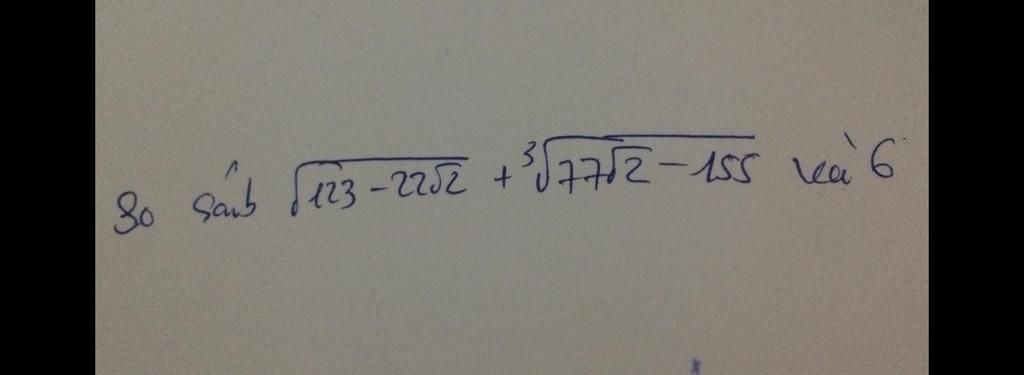 So sánh √(123 - 22√2) + ∛(77√2 - 155) và 6